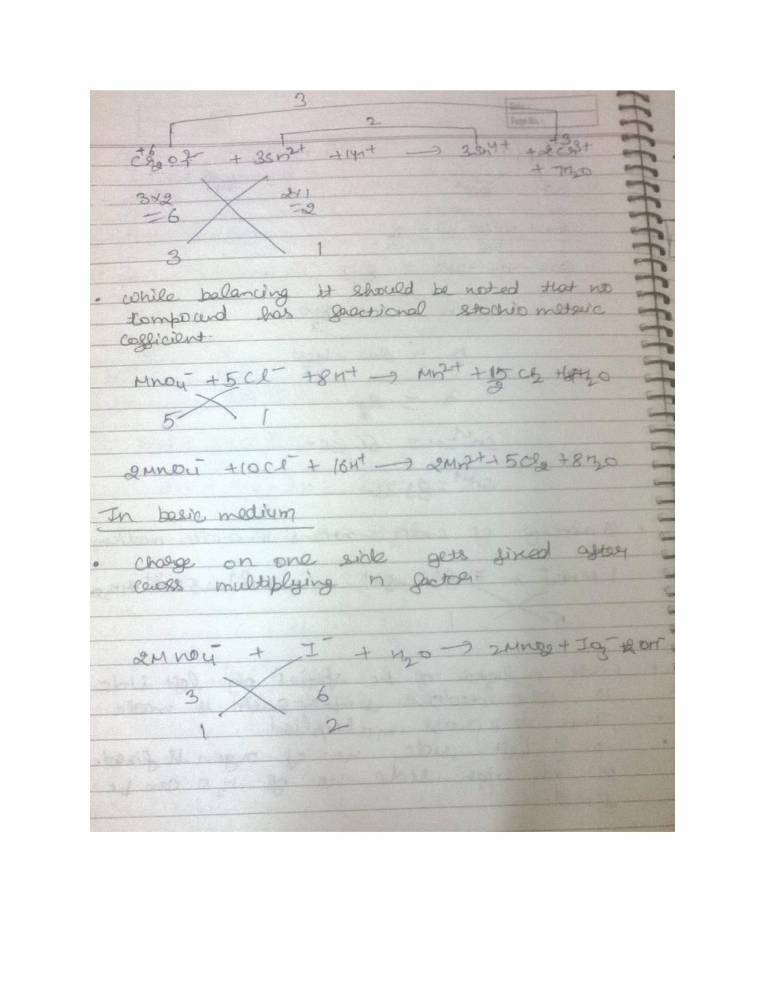 3
2
+6 +3
Cr2O7 2- + 3Sn2+ + 14H+ → 3Sn4+ + 2Cr3+
+ 7H2O
3×2 2×1
= 6 = 2
3 1
• While balancing it should be noted that no
compound has fractional stochiometric
cofficient.
MnO4- + 5Cl- + 8H+ → Mn2+ + 5/2 Cl2 + 4H2O
5 1
2MnO4- + 10Cl- + 16H+ → 2Mn2+ + 5Cl2 + 8H2O
In basic medium
• Charge on one side gets fixed after
cross multiplying n factor.
2MnO4- + I- + H2O → 2MnO2 + IO3- + 2OH-
3 6
1 2